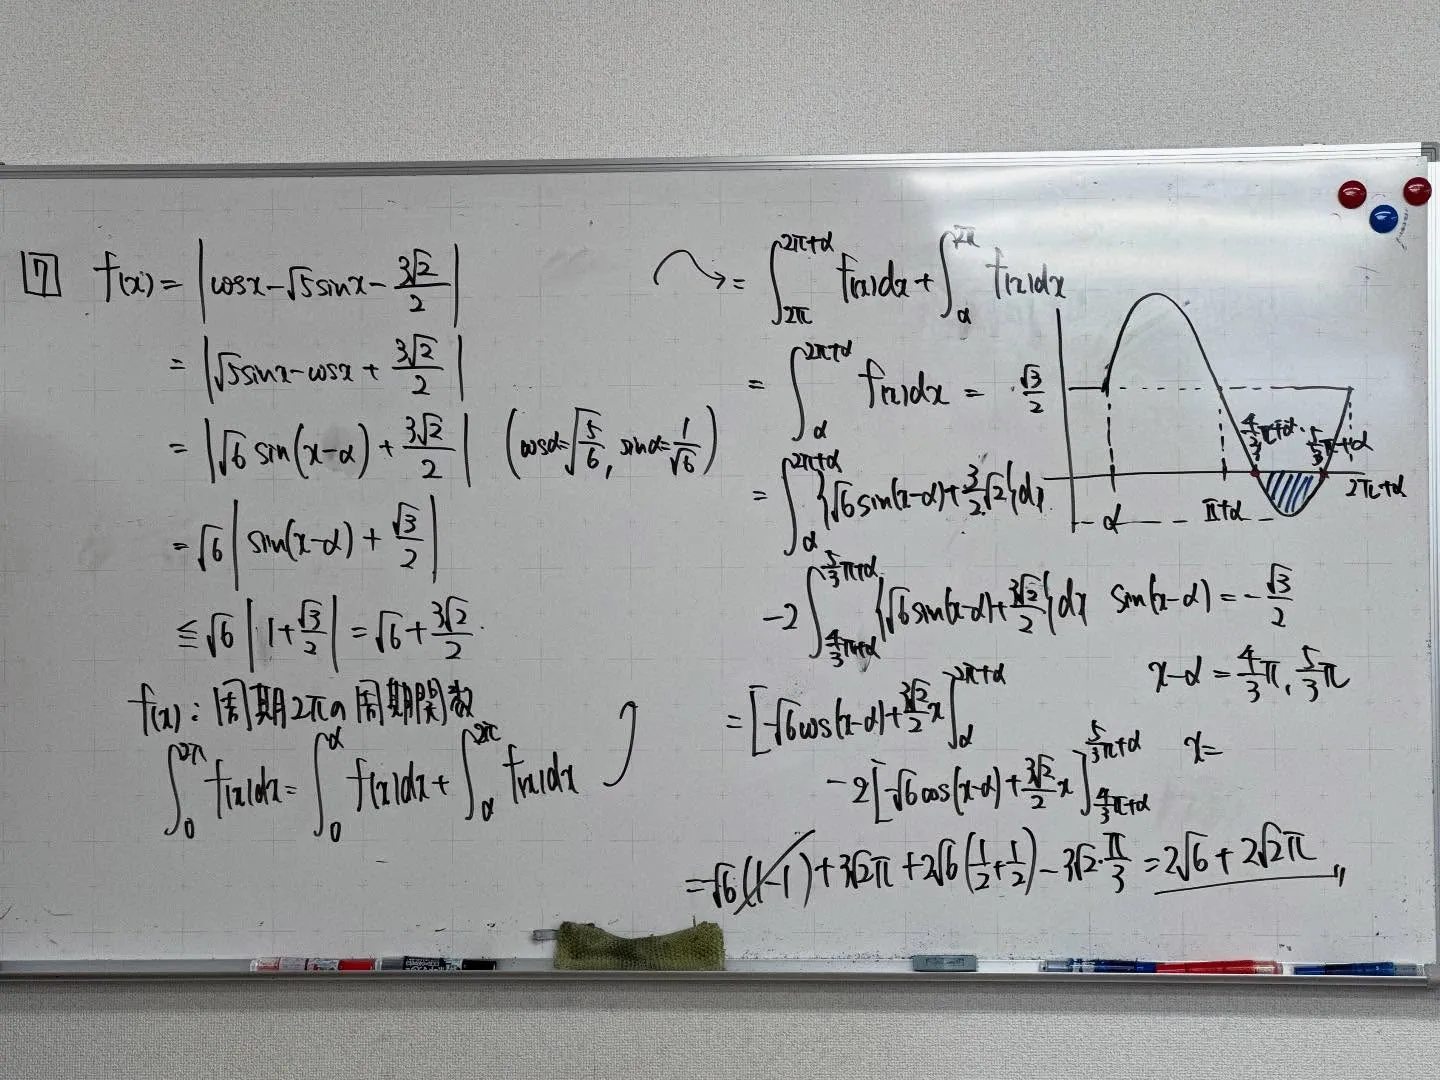 7 f(x) = |cosx - √5 sinx - 3√2/2|
= |√5 sinx - cosx + 3√2/2|
= |√6 sin(x-α) + 3√2/2| (cosα = √5/6, sinα = 1/√6)
= √6 |sin(x-α) + √3/2|
≦ √6 |1 + √3/2| = √6 + 3√2/2
f(x) : 周期2πの周期関数
∫_0^{2π} f(x)dx = ∫_0^α f(x)dx + ∫_α^{2π} f(x)dx
= ∫_{2π}^{2π+α} f(x)dx + ∫_α^{2π} f(x)dx
= ∫_α^{2π+α} f(x)dx =
= ∫_α^{2π+α} {√6 sin(x-α) + 3/2 √2} dx
-2 ∫_{4/3 π+α}^{5/3 π+α} {√6 sin(x-α) + 3√2/2} dx
= [-√6 cos(x-α) + 3√2/2 x]_α^{2π+α}
-2 [-√6 cos(x-α) + 3√2/2 x]_{4/3 π+α}^{5/3 π+α}
= -√6 (1-1) + 3√2π + 2√6 (1/2 + 1/2) - 3√2・π/3 = 2√6 + 2√2π
√3/2
4/3 π+α
5/3 π+α
α
π+α
2π+α
sin(x-α) = -√3/2
x-α = 4/3 π, 5/3 π
x=